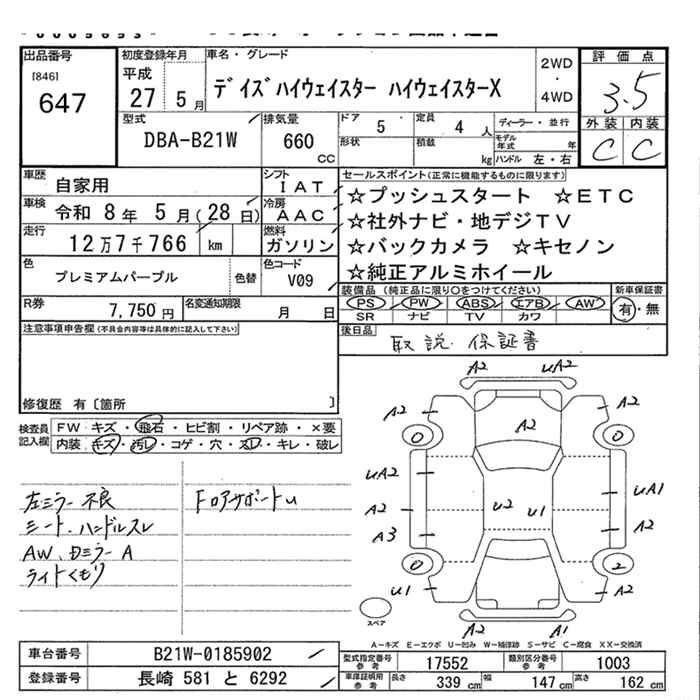 出品番号
[846]
647
初度登録年月
平成
27 5月
車名・グレード
デイズハイウェイスター ハイウェイスターX
2WD
・
4WD
評価点
3.5
外装 内装
C C
型式
DBA-B21W
排気量
660
CC
ドア
5
定員
4 人
形状
積載
kg
ディーラー・並行
モデル年式 年
ハンドル 左・右
車歴
自家用
シフト
IAT
車検
令和 8年 5月(28日)
冷房
AAC
走行
12万7千766 km
燃料
ガソリン
色
プレミアムパープル
色替
色コード
V09
R券
7,750円
名変通知期限
月 日
セールスポイント(正常に機能するものに限ります)
☆プッシュスタート ☆ETC
☆社外ナビ・地デジTV
☆バックカメラ ☆キセノン
☆純正アルミホイール
装備品(純正品に限り○をつけてください)
PS PW ABS エアB AW
SR ナビ TV カワ
新車保証書
有・無
後日品
取説・保証書
注意事項申告欄(不具合内容等は具体的に記入して下さい)
修復歴 有〔箇所 〕
検査員記入欄
FW キズ・飛石・ヒビ割・リペア跡・×要
内装 キズ・汚レ・コゲ・穴・スレ・キレ・破レ
左ミラー不良
シート、ハンドルスレ
AW、Dミラー A
ライトくもり
FロアサポートU
A2 UA2
A2 A2 A2
0 0
UA2
U2 U1
UA1
A2
A2
A3
0 2
U1 A2
A2 A1
スペア
A-キズ E-エクボ U-凹み W-補修跡 S-サビ C-腐食 XX-交換済
車台番号
B21W-0185902
登録番号
長崎 581 と 6292
型式指定番号
参考
17552
類別区分番号
参考
1003
車庫証明用
参考
長さ 339 cm
幅 147 cm
高さ 162 cm